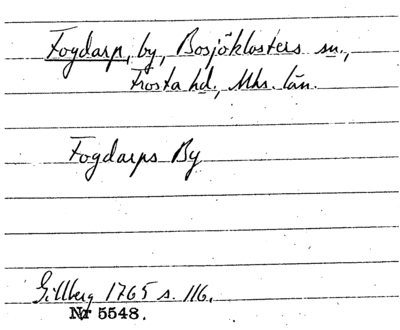 Fogdarp, by, Bosjöklosters sn.,
Frosta hd., Mhs. län.
Fogdarps By
Gillberg 1765 s. 116.
Nr 5548.